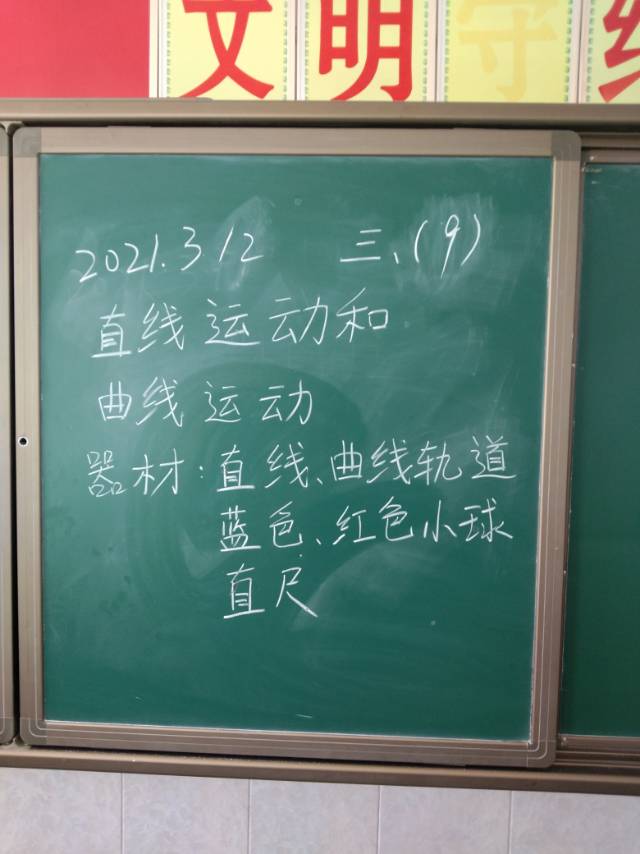 文明守纪
2021.3 12 三、(9)
直线运动和
曲线运动
器材：直线、曲线轨道
蓝色、红色小球
直尺